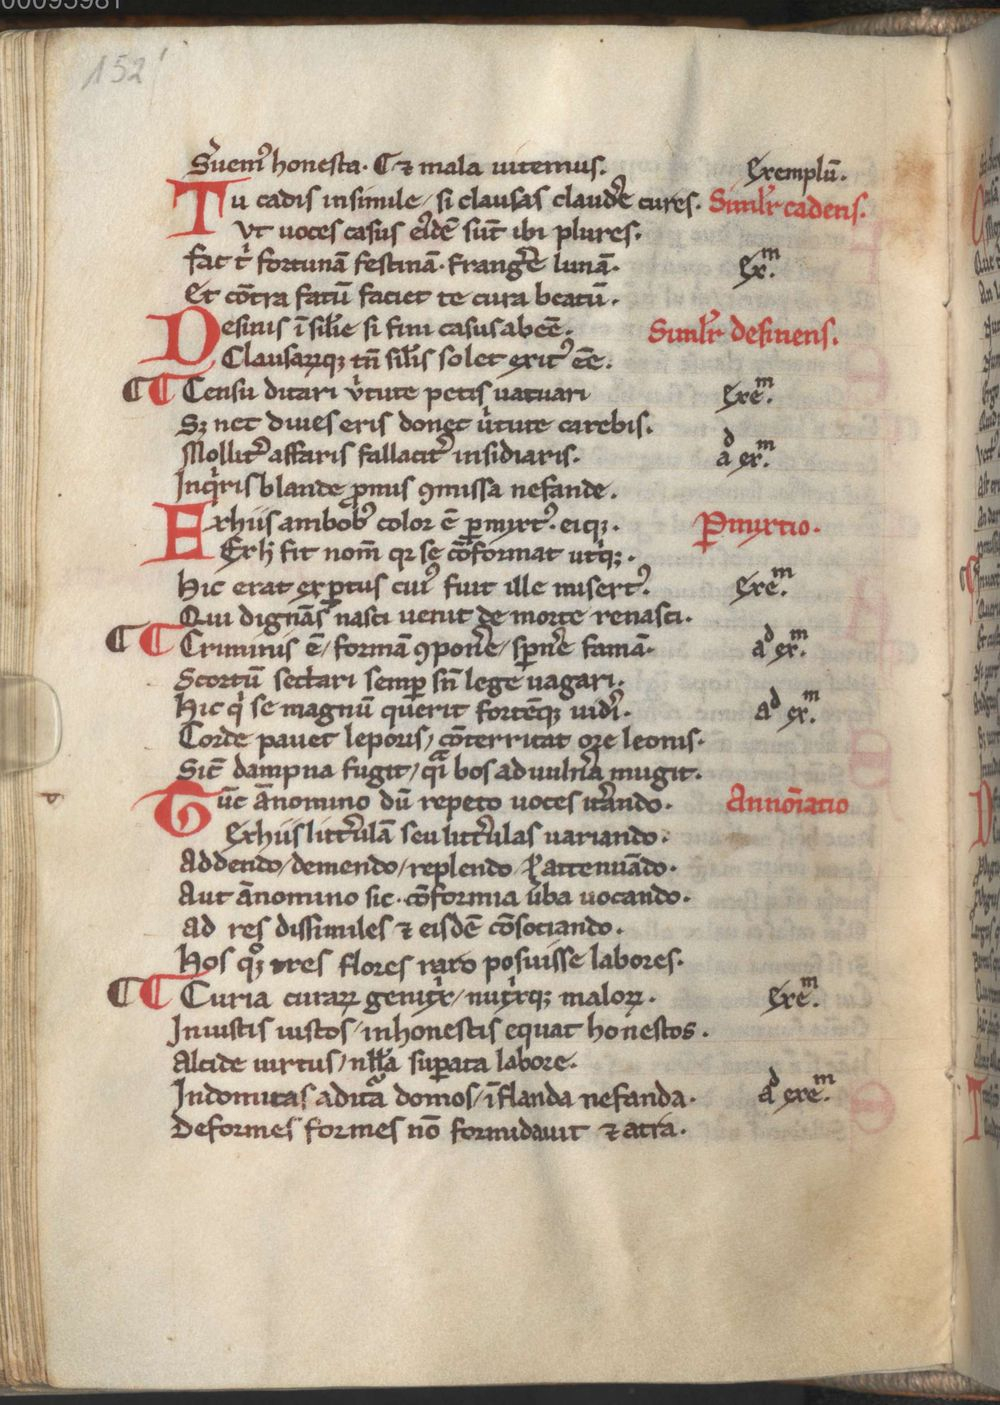 00095981
152
Suem9 honesta. ⁊ mala uitemus. Exemplū.
Tu cadis insimile / si clausas claud'e cures. Simil'r cadens.
Vt uoces casus eidē sūt ibi plures.
fac t' fortunā festinā. frang'e lunā. ex.m
Et cōtra fatū faciet te cura beatū.
Desinis ī sil'ie si fini casus abeē. Simil'r desinens.
Clausarūqꝫ tn̄ sil'is solet exit9 eē.
Censu ditari v'tute petis uacuari exē.m
Sꝫ nec diues eris donec v'tute carebis.
Mollit' affaris fallacit' insidiaris. ad ex.m
Inq'ris blande ꝓmis ꝯmissa nefande.
Ex hiis ambob9 color ē ꝑmyxt9. eiqꝫ. Ꝑmyxtio.
Ex hꝫ fit nom̄ qꝛ se cōformat utq'ꝫ.
Hic erat exꝑtus cui9 fuit ille misert9. exe.m
Qui dignās nasci uenit de morte renasci.
Criminis ē / formā ꝯpon'e / sꝑn'e famā. ad ex.m
Scortū sectari semꝑ sn̄ lege uagari.
Hic q' se magnū querit fortēqꝫ uid'i. ad ex.m
Corde pauet leporis / cōterritat ore leonis.
Sic dampna fugit / q̄ bos ad uuln'a mugit.
Tūc ānomino dū repeto uoces it'ando. Annoīatio
Ex hiis litt'ulā seu litt'ulas uariando.
Addendo / demendo / replendo / ł attenuādo.
Aut ānomino sic. cōformia v'ba uocando.
Ad res dissimiles ⁊ eisdē cōsociando.
Hos qꝫ tres flores raro posuisse labores.
Curia curaꝝ genit'x / nut'xqꝫ maloꝝ. exe.m
Iniustis iustos / inhonestis equat honestos.
Alcide uirtus / nll'a suꝑata labore.
Indomitas adit ͣ domos / īflanda nefanda. ad exe.m
Deformes formes nō formidauit ⁊ atra.